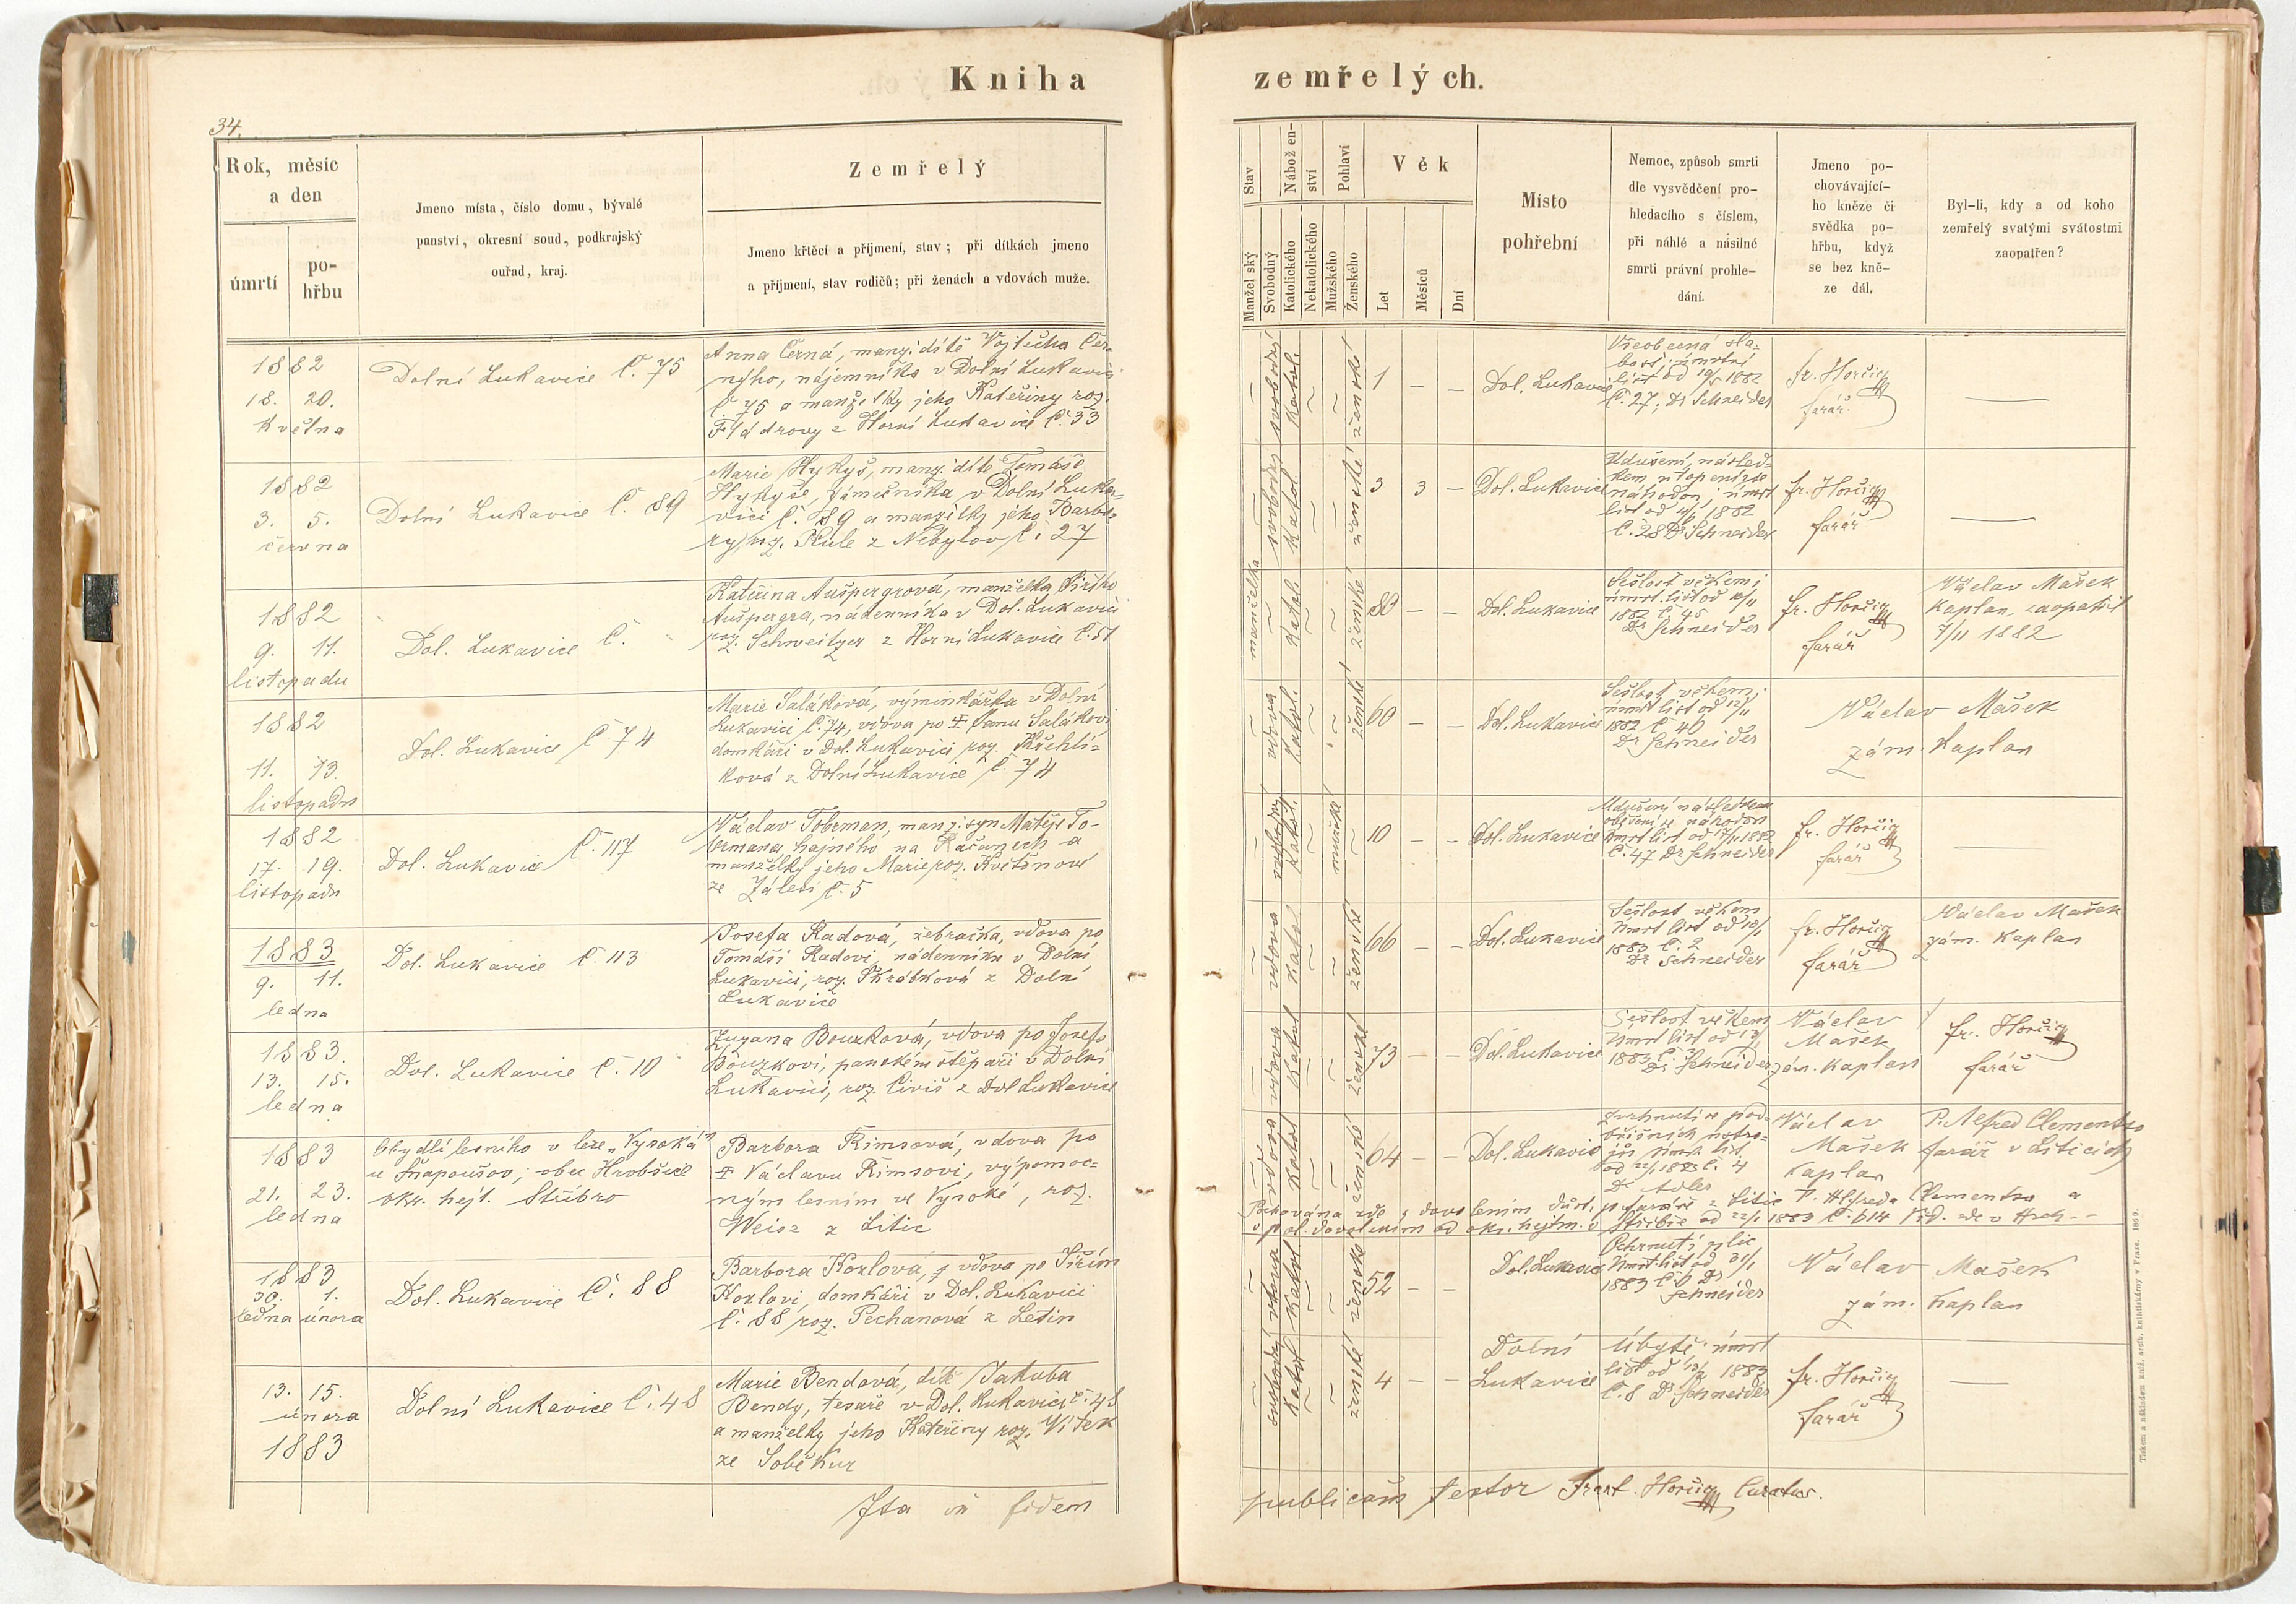 Kniha zemřelých.
34.
Rok, měsíc
a den
úmrtí
po-
hřbu
Jmeno místa, číslo domu, bývalé
panství, okresní soud, podkrajský
ouřad, kraj.
Zemřelý
Jmeno křtěcí a příjmení, stav; při dítkách jmeno
a příjmení, stav rodičů; při ženách a vdovách muže.
Stav
Manželský
Svobodný
Náboženství
Katolického
Nekatolického
Pohlaví
Mužského
Ženského
Věk
Let
Měsíců
Dní
Místo
pohřební
Nemoc, způsob smrti
dle vysvědčení pro-
hledacího s číslem,
při náhlé a násilné
smrti právní prohle-
dání.
Jmeno po-
chovávající-
ho kněze či
svědka po-
hřbu, když
se bez kně-
ze dál.
Byl-li, kdy a od koho
zemřelý svatými svátostmi
zaopatřen?
1882
18. 20.
května
Dolní Lukavice Č. 75
Anna Černá, manž. dítě Vojtěcha Čer-
ného, nájemníka v Dolní Lukavici
Č. 75 a manželky jeho Kateřiny roz.
Fládrovy z Horní Lukavice Č. 33
svobodná katol. ženské
1 — —
Dol. Lukavice
Všeobecná sla-
bost; úmrtní
list od 19/5 1882
Č. 27; Dr Schneider
fr. Horčig
farář.
1882
3. 5.
června
Dolní Lukavice Č. 89
Marie Hykyš, manž. dítě Tomáše
Hykyše, zámečníka v Dolní Luka-
vici Č. 89 a manželky jeho Barbo-
ry roz. Kule z Nebylov Č. 27
svobodná katol ženské
3 3 —
Dol. Lukavice
Udušení, násled-
kem utopení se
náhodou; úmrt
list od 4/6 1882
Č. 28 Dr Schneider
fr. Horčig
farář
1882
9. 11.
listopadu
Dol. Lukavice Č.
Kateřina Aušpergrová, manželka Jiřího
Aušpergra, nádenníka v Dol. Lukavici
roz. Schweitzer z Horní Lukavice Č. 51
manželka katol. ženské
80 — —
Dol. Lukavice
Sešlost věkem;
úmrt. list od 10/11
1882 Č. 45
Dr Schneider
fr. Horčig
farář
Václav Mašek
kaplan, zaopatřil
7/11 1882
1882
11. 13.
listopadu
Dol. Lukavice Č 74
Marie Saláková, výminkářka v Dolní
Lukavici Č. 74, vdova po † Janu Salákovi,
domkáři v Dol. Lukavici roz. Křehlí-
ková z Dolní Lukavice Č. 74
vdova katol. ženské
60 — —
Dol. Lukavice
Sešlost věkem;
úmrt list od 12/11
1882 Č 46
Dr Schneider
Václav Mašek
zám. kaplan
1882
17. 19.
listopadu
Dol. Lukavice Č. 117
Václav Tobrman, manž. syn Matěje To-
brmana hajného na Račanech a
manželky jeho Marie roz. Květoňové
ze Zálesí Č. 5
svobodný katol. mužské
10 — —
Dol. Lukavice
Udušení následkem
oběšení se náhodou
úmrt list od 17/11 1882
Č. 47 Dr Schneider
fr. Horčig
farář
1883
9. 11.
ledna
Dol. Lukavice Č. 113
Josefa Radová, žebračka, vdova po
Tomáši Radovi, nádenníku v Dolní
Lukavici, roz. Škrábková z Dolní
Lukavice
vdova katol ženské
66 — —
Dol. Lukavice
Sešlost věkem
úmrt list od 10/1
1883 Č. 2
Dr Schneider
fr. Horčig
farář
Václav Mašek
zám. kaplan
1883.
13. 15.
ledna
Dol. Lukavice Č. 10
Zuzana Bouzková, vdova po Josefo
Bouzkovi, panském štěpaři v Dolní
Lukavici, roz. Čiviš z Dol Lukavice
vdova katol ženské
73 — —
Dol. Lukavice
Sešlost věkem
úmrt list od 13/1
1883 Č. 3
Dr Schneider
Václav
Mašek
zám. kaplan
fr. Horčig
farář
1883
21. 23.
ledna
Obydlí lesního v lese „Vysoká“
u Šnapoušov, obec Hrobšice
okr. hejt. Stříbro
Barbora Římsová, vdova po
† Václavu Římsovi, výpomoc-
ným lesním ve Vysoké, roz.
Weisz z Litic
vdova katol ženské
64 — —
Dol. Lukavice
Zvrhnutí se pod-
břišních ústro-
jů úmrt list
od 22/1 1883 Č. 4
Dr Adler
Václav
Mašek
kaplan
P. Alfred Clementso
farář v Liticích
Pochována zde s dovolením důst. p. faráře z Litic P. Alfreda Clementsa a
s pol. dovolením od okr. hejtm. v Stříbře od 22/1 1883 Č. 614 Vid. zde v Arch.
1883
30. 1.
ledna února
Dol. Lukavice Č. 88
Barbora Kozlová, vdova po Jiřím
Kozlovi, domkáři v Dol. Lukavici
Č. 88 roz. Pechanová z Letin
vdova katol ženské
52 — —
Dol. Lukavice
Ochrnutí plic
úmrt list od 31/1
1883 Č 6 Dr
Schneider
Václav Mašek
zám. kaplan
13. 15.
února
1883
Dolní Lukavice Č. 48
Marie Bendová, dítě Jakuba
Bendy, tesaře v Dol. Lukavici Č. 48
a manželky jeho Kateřiny roz. Vítek
ze Soběkur
svobodný katol ženské
4 — —
Dolní
Lukavice
Úbytě; úmrt
list od 13/2 1883
Č. 8 Dr Schneider
fr. Horčig
farář
Ita in fidem
publicam testor Frant. Horčig Curatus.
Tiskem a nákladem kníž. arcib. knihtiskárny v Praze. 1869.